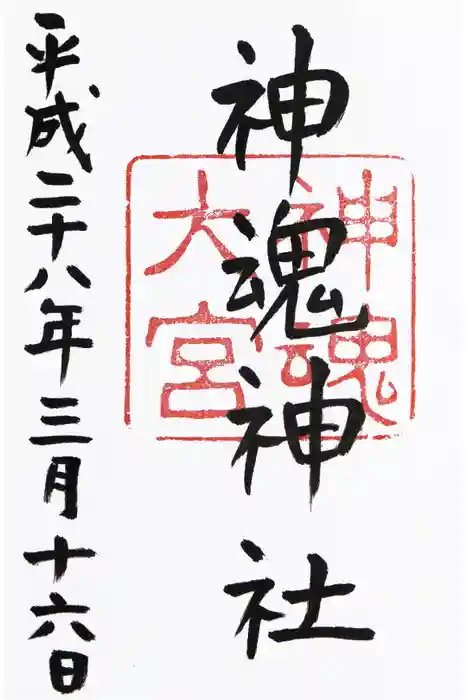 神魂神社
神魂
大宮
平成二十八年三月十六日